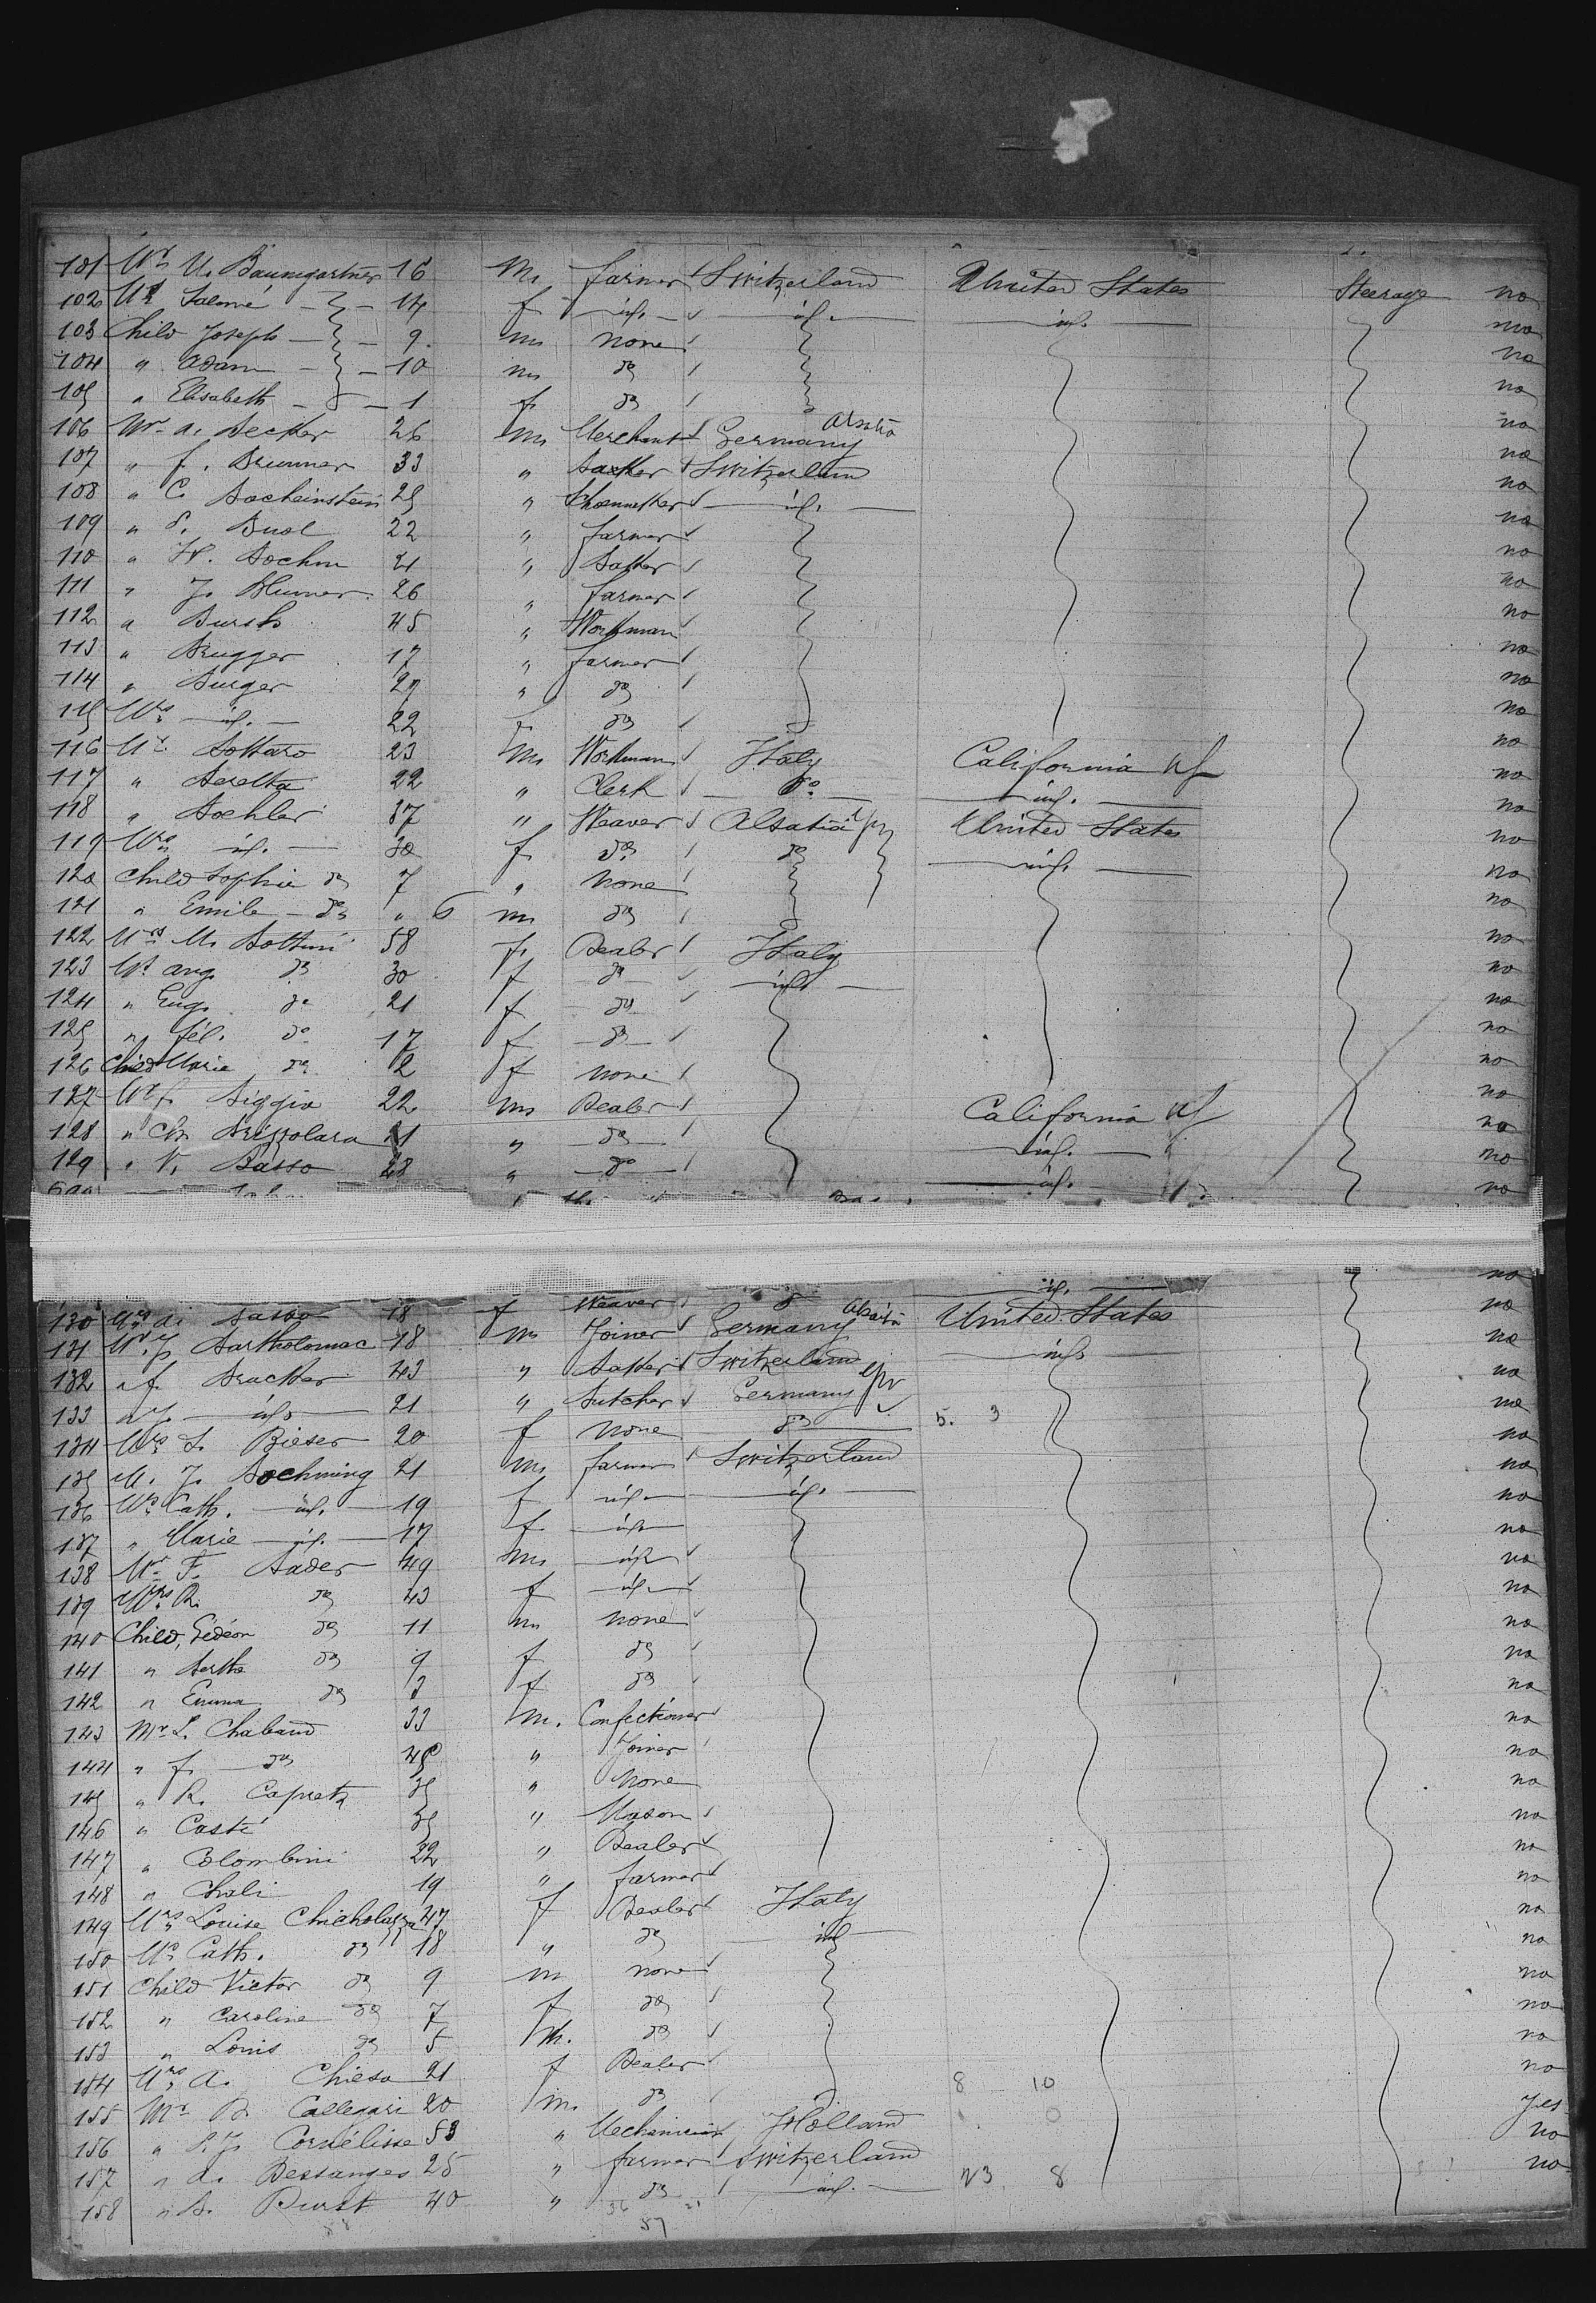 101 Mr. U. Baumgartner 16 m. farmer Switzerland United States Steerage no
102 Salomé 14 f id. id. id. no
103 Child Joseph 9 m none no
104 " Adam 10 m do no
105 " Elisabeth 1 f do no
106 Mr. A. Becker 26 m Merchant Germany Alsatia no
107 " f. Brunner 33 " Baker Switzerland no
108 " C. Bocheinstein 25 " Shoemaker id. no
109 " Busl 22 " farmer no
110 " Bochm 21 " Baker no
111 " J. Blumer 26 " farmer no
112 " Bursk 45 " Workman no
113 " Brugger 17 " farmer no
114 " Burger 27 " do no
115 Mrs id. 22 f do no
116 Mr. Bottaro 23 m Workman Italy California no
117 " Beretta 22 " Clerk do id. no
118 " Boehler 37 " Weaver Alsatia United States no
119 Mrs id. 30 f do do id. no
120 Child Sophie do 7 " none no
121 " Emile do " 6 m do no
122 Mrs M. Bottini 58 f Dealer Italy no
123 Ang. do 30 f do id. no
124 " Eug. do 21 f do no
125 " fél. do 17 f do no
126 Child Marie do 2 f none no
127 Mr f. Biggio 22 m Dealer California no
128 " Ch. Brizzolara 21 " do id. no
129 " V. Basso 28 " do id. no
130 Basso 18 f Weaver id. no
131 Mr. J. Bartholomae 18 m Joiner Germany Alsatia United States no
132 " f. Bracker 43 " Baker Switzerland id. no
133 " J. id. 21 " Butcher Germany no
134 Mrs S. Bieser 20 f none do 5. 3 no
135 M. J. Boehming 21 m farmer Switzerland no
136 Cath. id. 19 f id. id. no
137 " Marie id. 17 f id. no
138 Mr. F. Bader 49 m id. no
139 Mrs R. do 43 f id. no
140 Child, Gédéon do 11 m none no
141 " Bertha do 9 f do no
142 " Emma do 3 f do no
143 Mr. L. Chabaud 33 m. Confectioner no
144 " f. do 45 " Joiner no
145 " R. Capretz 35 " None no
146 " Casté 35 " Mason no
147 " Colombini 22 " Dealer no
148 " Chali 19 " farmer no
149 Mrs Louise 47 f Dealer Italy no
150 Cath. do 18 " do id no
151 Child Victor do 9 m none no
152 " Caroline do 7 f do no
153 " Louis do 5 m. do no
154 A. Chiesa 21 f Dealer no
155 Mr. B. Callegari 20 m. do 8 10 yes
156 " P. J. Cornélisse 53 " Mechanician Holland no
157 " A. Dessanges 25 " farmer Switzerland no
158 " B. Durst 40 " do id. 8
37